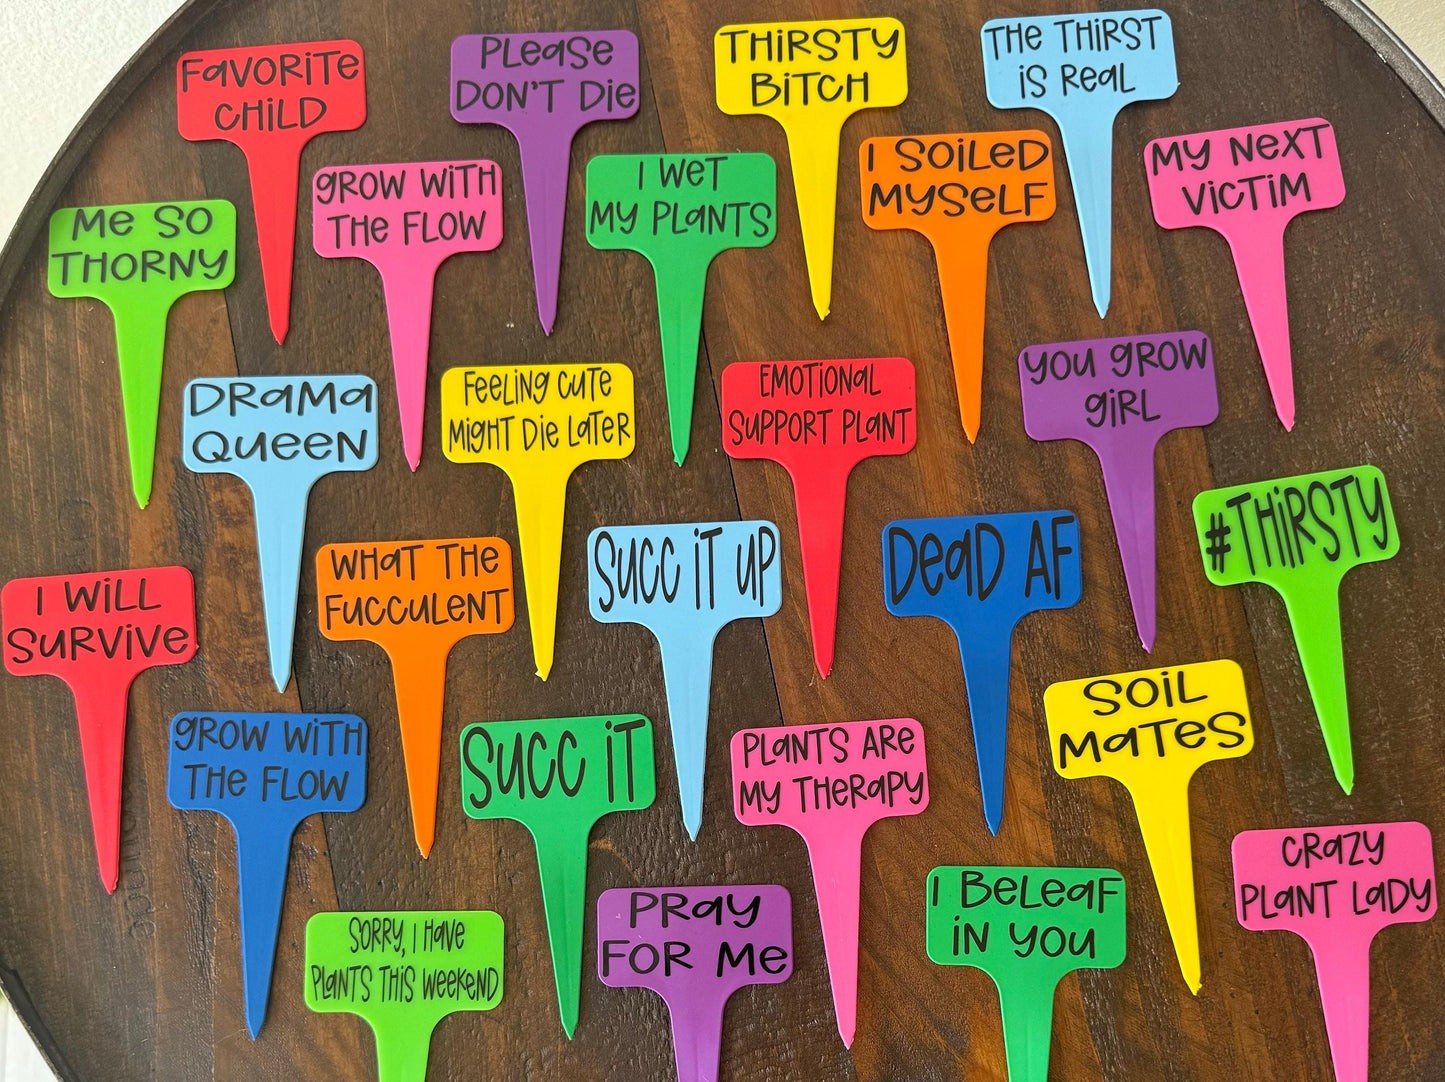 FAVORITE
CHILD
PLEASE
DON'T DIE
THIRSTY
BITCH
THE THIRST
IS REAL
ME SO
THORNY
GROW WITH
THE FLOW
I WET
MY PLANTS
I SOILED
MYSELF
MY NEXT
VICTIM
DRAMA
QUEEN
FEELING CUTE
MIGHT DIE LATER
EMOTIONAL
SUPPORT PLANT
YOU GROW
GIRL
I WILL
SURVIVE
WHAT THE
FUCCULENT
SUCC IT UP
DEAD AF
#THIRSTY
GROW WITH
THE FLOW
SUCC IT
PLANTS ARE
MY THERAPY
SOIL
MATES
SORRY, I HAVE
PLANTS THIS WEEKEND
PRAY
FOR ME
I BELEAF
IN YOU
CRAZY
PLANT LADY